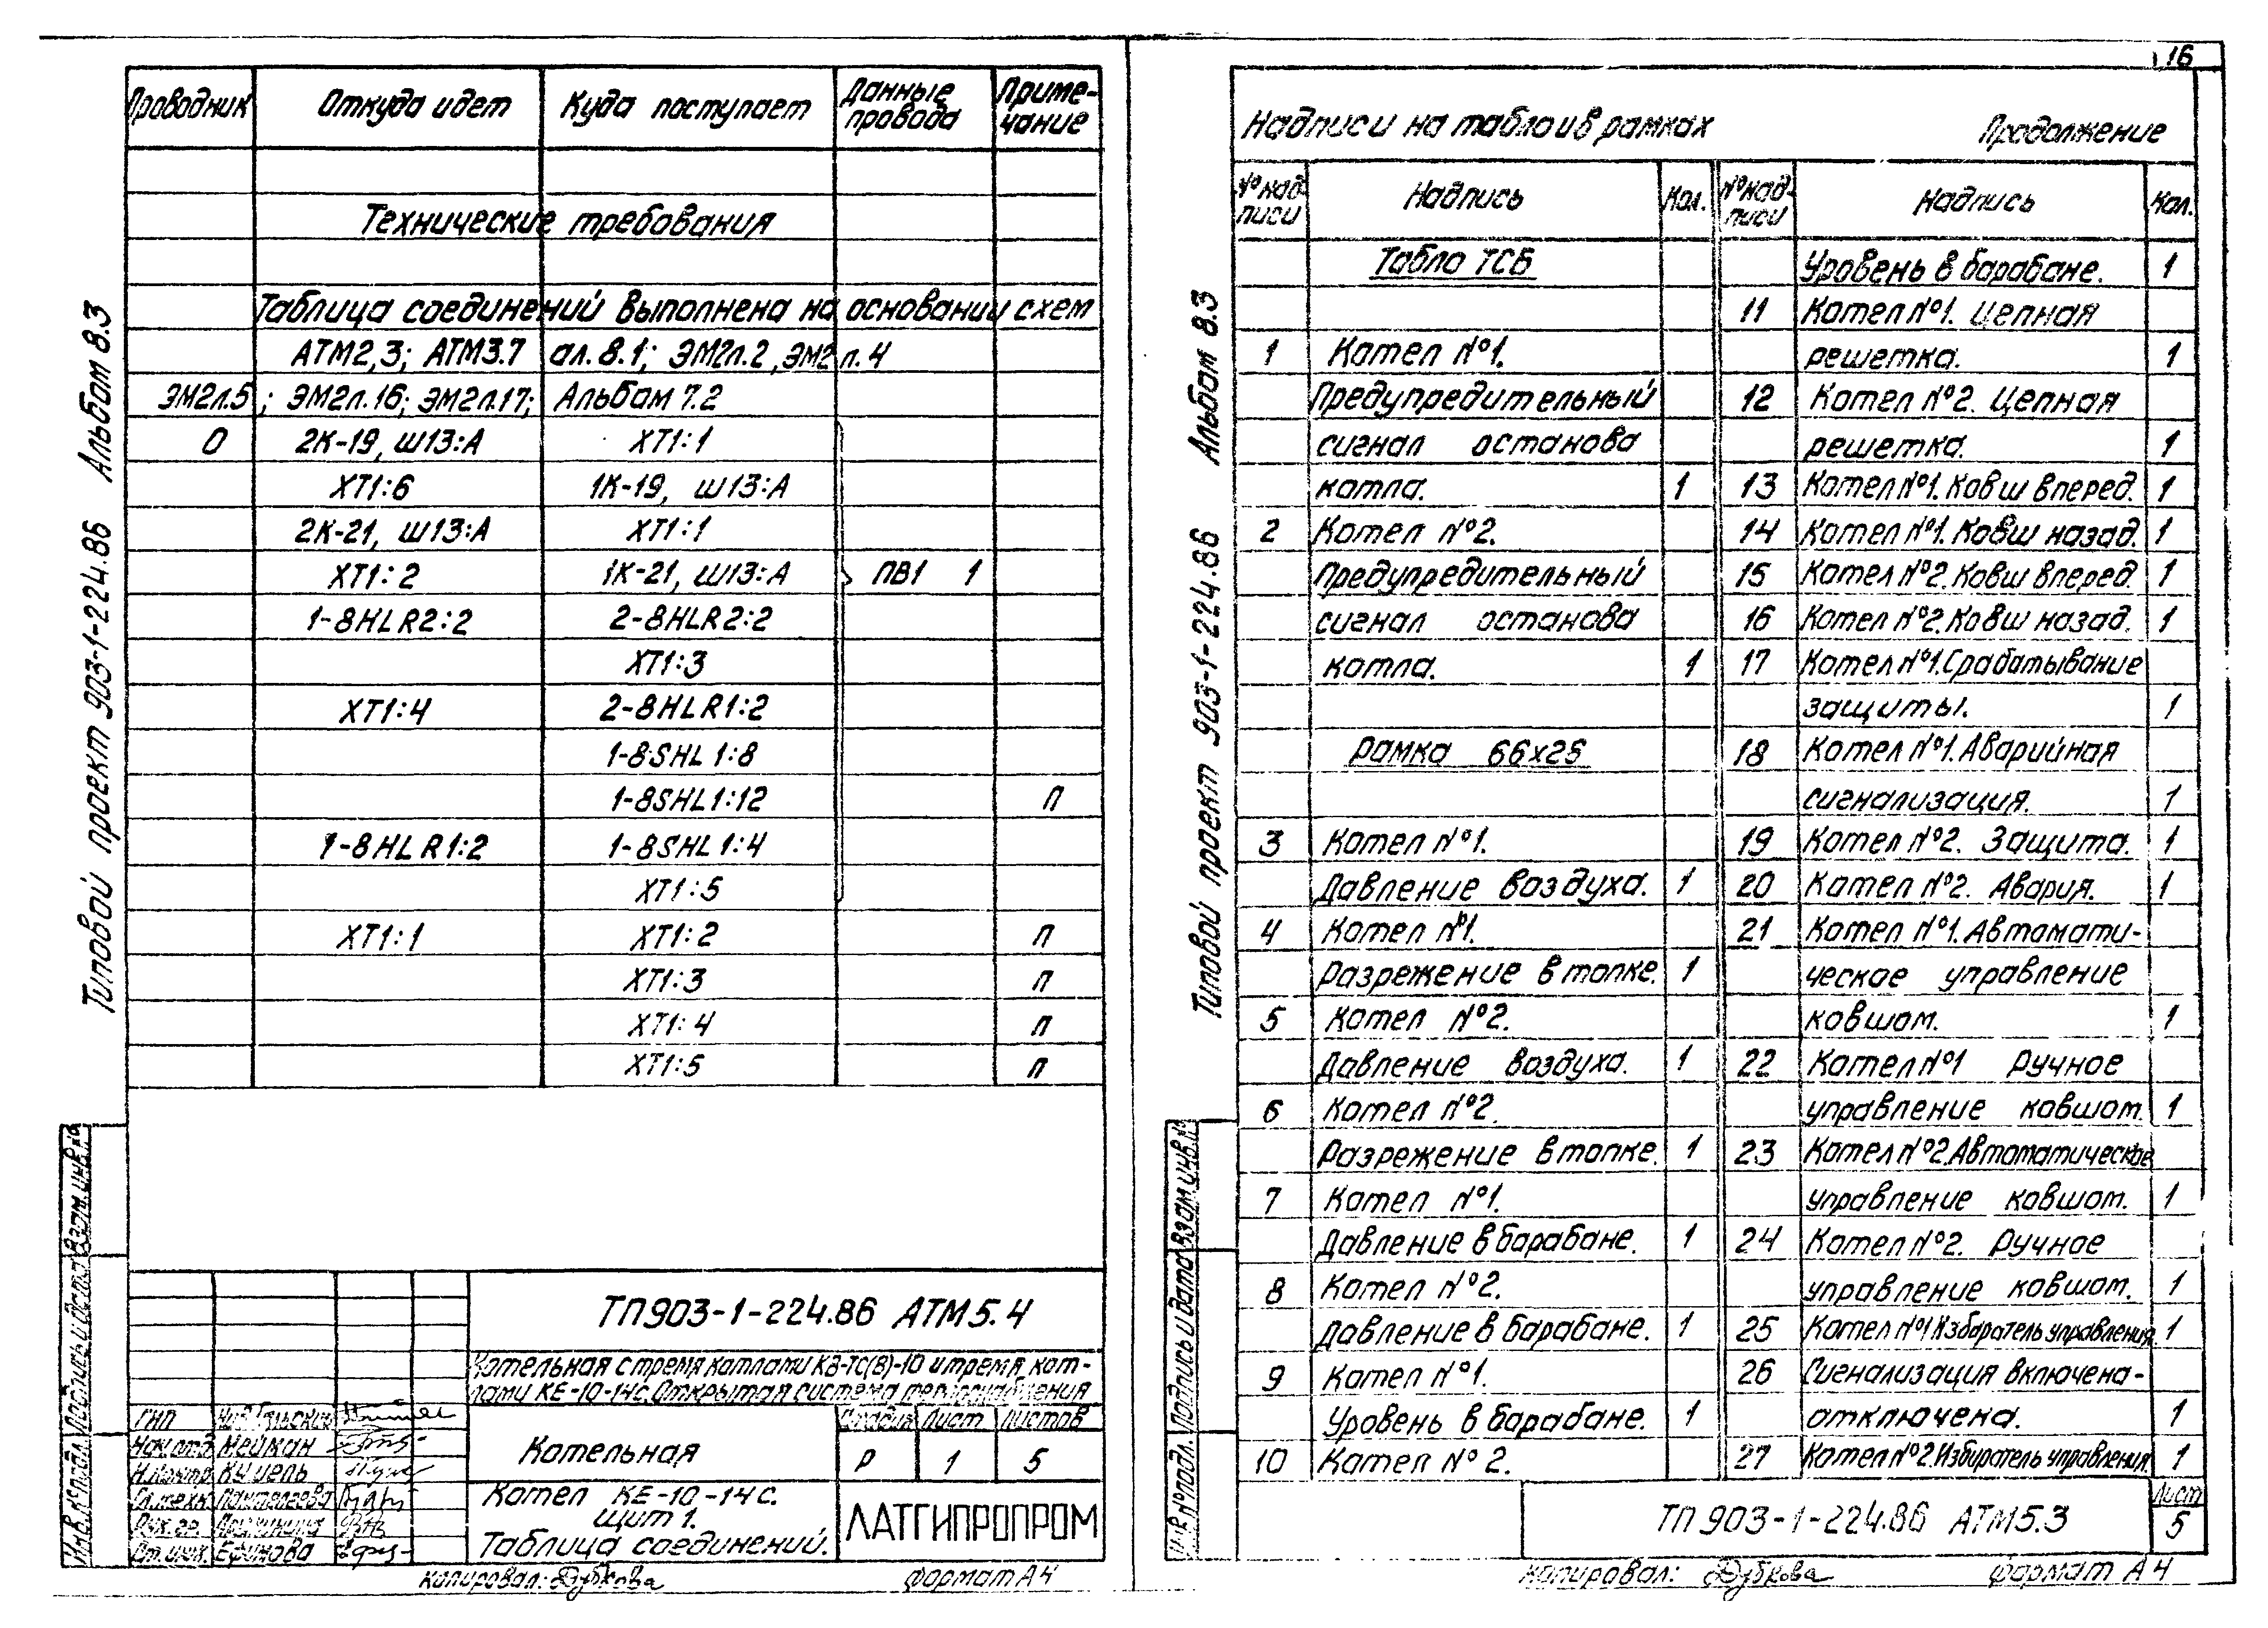 16
Проводник Откуда идет Куда поступает Данные провода Приме-чание
Технические требования
Таблица соединений выполнена на основании схем
АТМ2,3; АТМ3.7 ал.8.1; ЭМ2л.2, ЭМ2 л.4
ЭМ2л.5; ЭМ2л.16; ЭМ2л.17; Альбом 7.2
0 2К-19, Ш13:А ХТ1:1
ХТ1:6 1К-19, Ш13:А
2К-21, Ш13:А ХТ1:1
ХТ1:2 1К-21, Ш13:А ПВ1 1
1-8HLR2:2 2-8HLR2:2
ХТ1:3
ХТ1:4 2-8HLR1:2
1-8SHL1:8
1-8SHL1:12 П
1-8HLR1:2 1-8SHL1:4
ХТ1:5
ХТ1:1 ХТ1:2 П
ХТ1:3 П
ХТ1:4 П
ХТ1:5 П
Типовой проект 903-1-224.86 Альбом 8.3
Инв.№ подл. Подпись и дата Взам.инв.№
ТП903-1-224.86 АТМ5.4
Котельная с тремя котлами КВ-ТС(В)-10 и тремя кот-
лами КЕ-10-14с. Открытая система теплоснабжения
ГИП
Нач.отд. Мейман
Н.контр.
Гл.техн. Пантелеева
Рук.гр.
Ст.инж. Ефимова
Котельная
Стадия Лист Листов
Р 1 5
Котел КЕ-10-14с.
Щит 1.
Таблица соединений.
ЛАТГИПРОПРОМ
Копировал: Дубкова Формат А4
Надписи на табло и в рамках Продолжение
№ над-писи Надпись Кол. № над-писи Надпись Кол.
Табло ТСБ Уровень в барабане. 1
11 Котел №1. Цепная
1 Котел №1. решетка. 1
Предупредительный 12 Котел №2. Цепная
сигнал останова решетка. 1
котла. 1 13 Котел №1. Ковш вперед. 1
2 Котел №2. 14 Котел №1. Ковш назад. 1
Предупредительный 15 Котел №2. Ковш вперед. 1
сигнал останова 16 Котел №2. Ковш назад. 1
котла. 1 17 Котел №1. Срабатывание
защиты. 1
Рамка 66х26 18 Котел №1. Аварийная
сигнализация. 1
3 Котел №1. 19 Котел №2. Защита. 1
Давление воздуха. 1 20 Котел №2. Авария. 1
4 Котел №1. 21 Котел №1. Автомати-
Разрежение в топке. 1 ческое управление
5 Котел №2. ковшом. 1
Давление воздуха. 1 22 Котел №1 Ручное
6 Котел №2. управление ковшом. 1
Разрежение в топке. 1 23 Котел №2. Автоматическое
7 Котел №1. управление ковшом. 1
Давление в барабане. 1 24 Котел №2. Ручное
8 Котел №2. управление ковшом. 1
Давление в барабане. 1 25 Котел №1 Избиратель управления. 1
9 Котел №1. 26 Сигнализация включена-
Уровень в барабане. 1 отключена. 1
10 Котел №2. 27 Котел №2. Избиратель управления 1
Типовой проект 903-1-224.86 Альбом 8.3
Инв.№ подл. Подпись и дата Взам.инв.№
ТП903-1-224.86 АТМ5.3
Лист
5
Копировал: Дубкова Формат А4